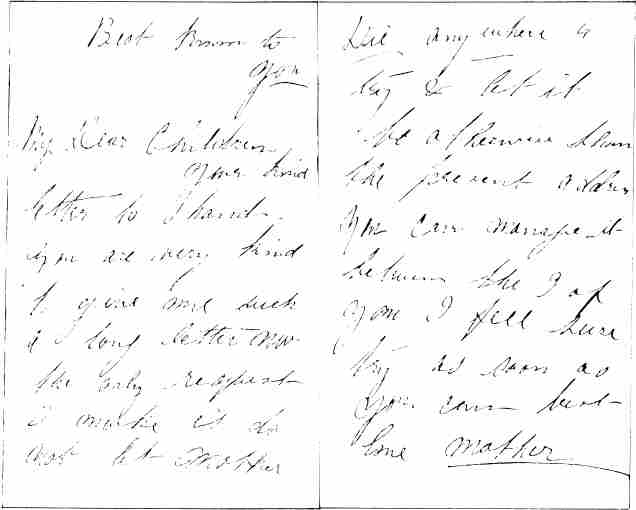 Best known to
you
My Dear Children
your kind
letter to hand
you are very kind
to give me such
a long letter now
the only request
I make is do
not let Mother
Die anywhere &
try & let it
be otherwise than
the present address
you can manage it
between the 3 of
you I feel sure
try as soon as
you can best
love mother